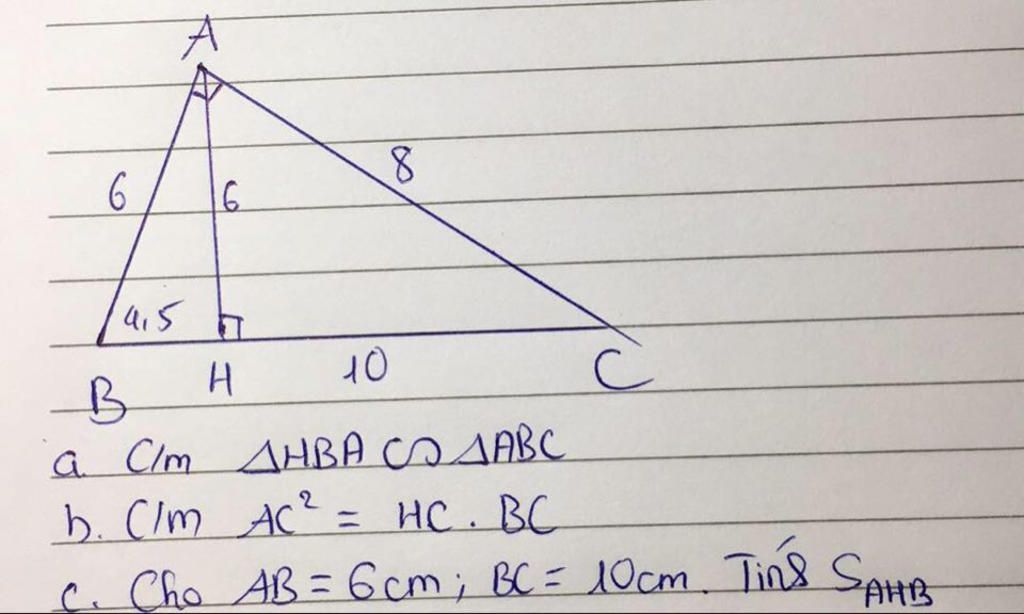 A
6
6
8
4,5
B
H
10
C
a. C/m ΔHBA ∽ ΔABC
b. C/m AC² = HC . BC
c. Cho AB = 6cm ; BC = 10cm. Tính S_AHB